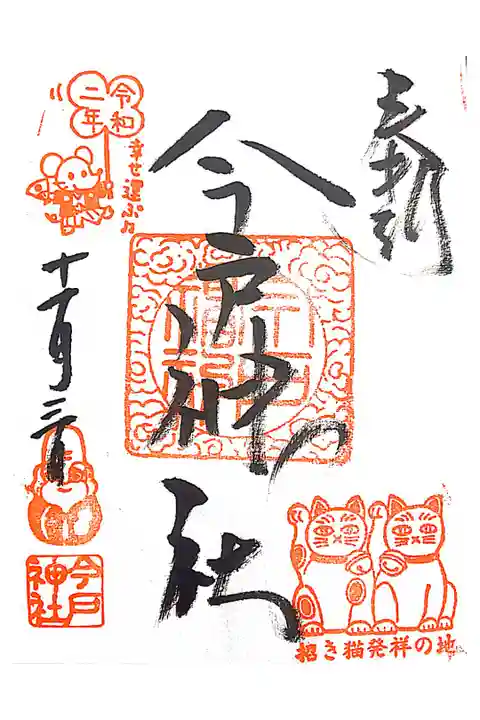 奉拝
今戸神社
令和
二年
幸せ運ぶ♫
十一月三日
今戸
神社
招き猫発祥の地